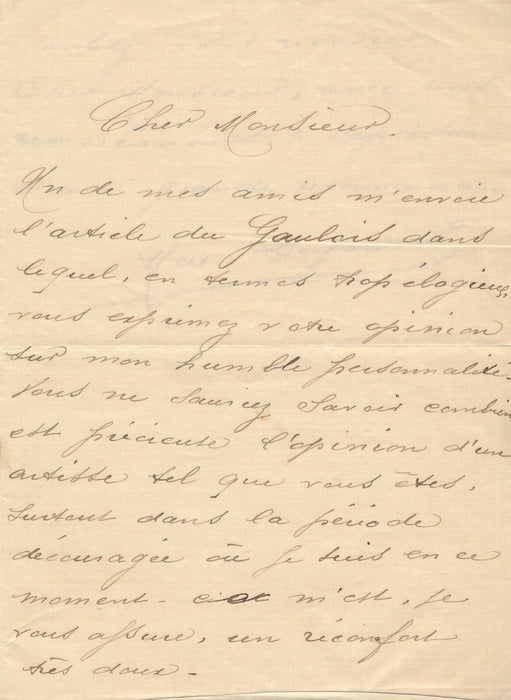 Cher Monsieur.
Un de mes amis m'envoie
l'article du Gaulois dans
lequel, en termes trop élogieux,
vous exprimez votre opinion
sur mon humble personnalité.
Vous ne sauriez savoir combien
est précieuse l'opinion d'un
artiste tel que vous êtes,
surtout dans la période
découragée où je suis en ce
moment - c'est m'est, je
vous assure, un réconfort
très doux -